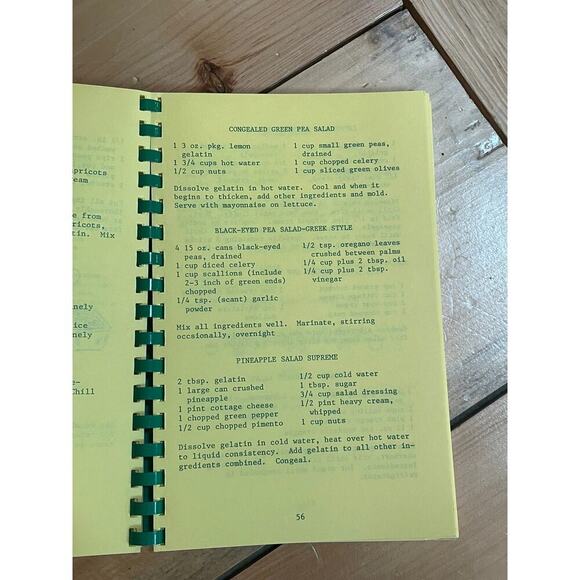 pricots
eam
e from
ricots,
tin. Mix
nely
ice
nely
e-
Chill
CONGEALED GREEN PEA SALAD
1 3 oz. pkg. lemon
gelatin
1 3/4 cups hot water
1/2 cup nuts
1 cup small green peas,
drained
1 cup chopped celery
1 cup sliced green olives
Dissolve gelatin in hot water. Cool and when it
begins to thicken, add other ingredients and mold.
Serve with mayonnaise on lettuce.
BLACK-EYED PEA SALAD-GREEK STYLE
4 15 oz. cans black-eyed
peas, drained
1 cup diced celery
1 cup scallions (include
2-3 inch of green ends)
chopped
1/4 tsp. (scant) garlic
powder
1/2 tsp. oregano leaves
crushed between palms
1/4 cup plus 2 tbsp. oil
1/4 cup plus 2 tbsp.
vinegar
Mix all ingredients well. Marinate, stirring
occsionally, overnight
PINEAPPLE SALAD SUPREME
2 tbsp. gelatin
1 large can crushed
pineapple
1 pint cottage cheese
1 chopped green pepper
1/2 cup chopped pimento
1/2 cup cold water
1 tbsp. sugar
3/4 cup salad dressing
1/2 pint heavy cream,
whipped
1 cup nuts
Dissolve gelatin in cold water, heat over hot water
to liquid consistency. Add gelatin to all other in-
gredients combined. Congeal.
56